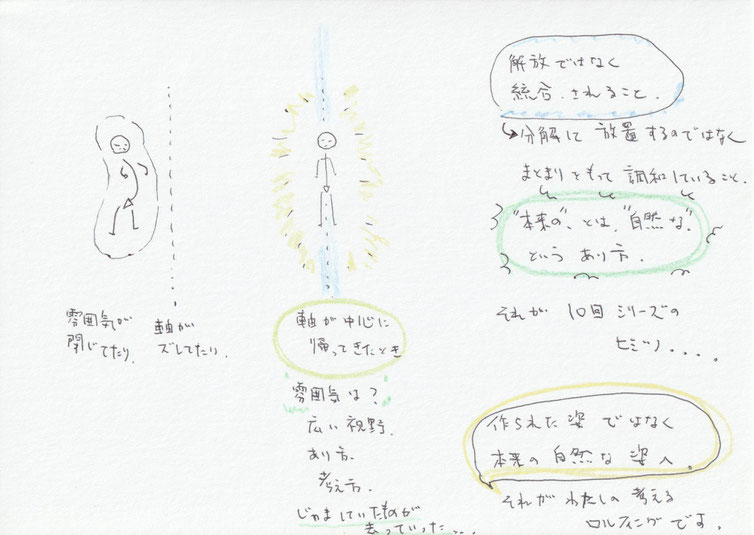 雰囲気が
閉じてたり.
軸が
ズレてたり.
軸が中心に
帰ってきたとき
雰囲気は?
広い視野.
あり方.
考え方.
じゃましていたものが
去っていった...
解放ではなく
統合.されること.
分解して放置するのではなく
まとまりをもって調和していること.
"本来の"とは,"自然な"
というあり方.
それが10回シリーズの
ヒミツ....
作られた姿ではなく
本来の自然な姿へ.
それがわたしの考える
ロルフィングです.